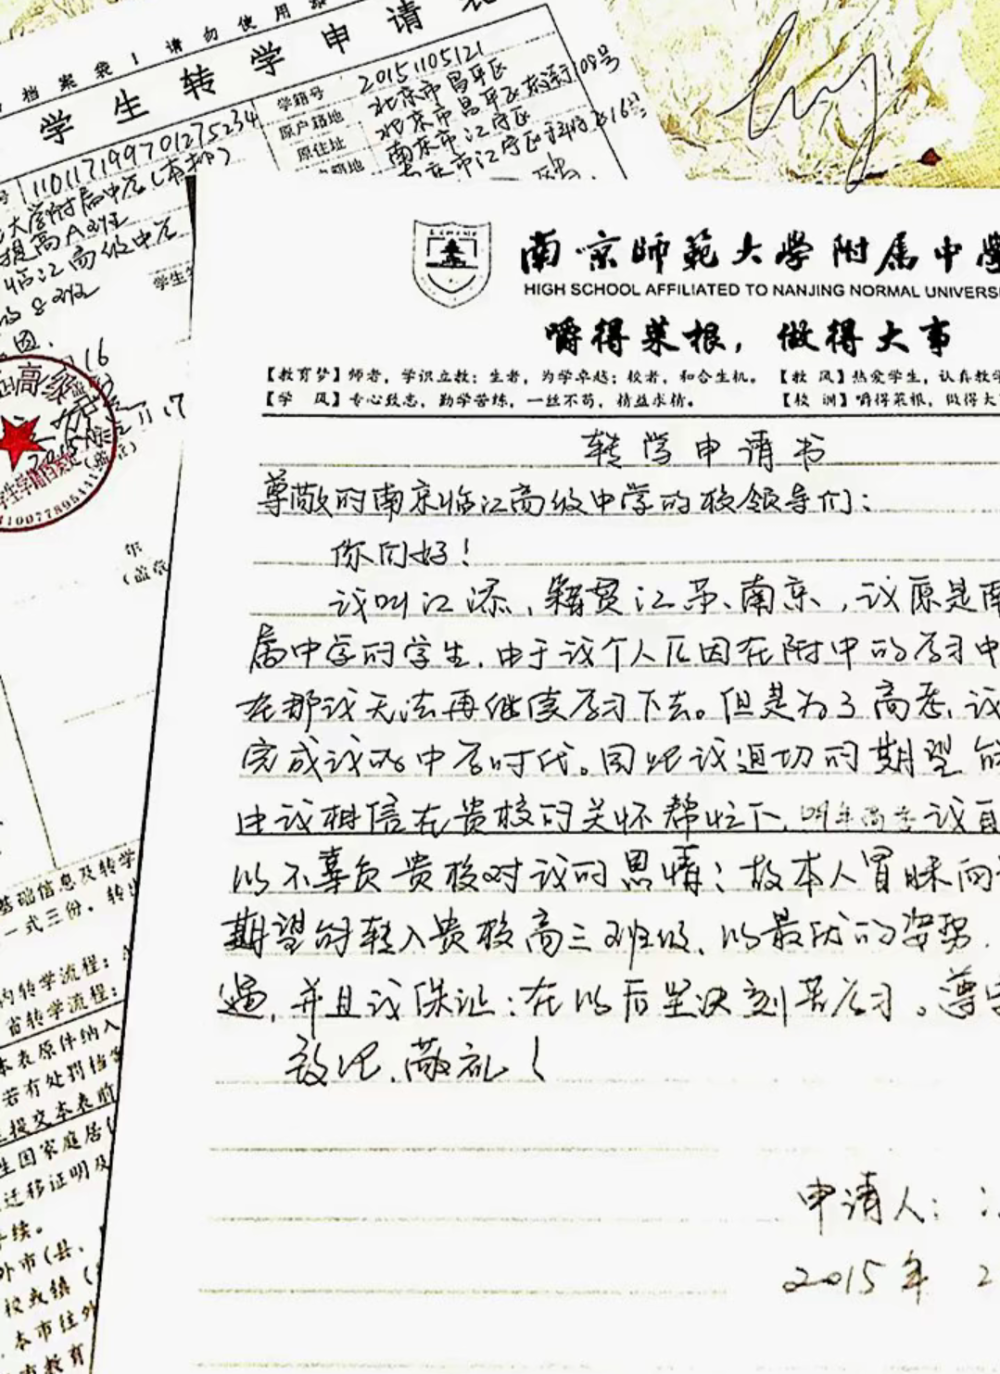 档案袋！请勿使用
学生转学申请表
学籍号 20151105121
原户籍地 北京市昌平区
原住址 北京市昌平区东诱街108号
南京市江宁区
110117199701275234
大学附属中学(本部)
提高A班
临江高级中学
8班
学生签
16
11 17
高级
学生学籍档案
年
(盖章
基础信息及转学
一式三份。转出
内转学流程：
省转学流程：
本表原件纳入
若有处罚档案
提交本表前
生因家庭居住
迁移证明及
手续。
外市(县、
校或镇（
本市往外
市教育
南京师范大学附属中学
HIGH SCHOOL AFFILIATED TO NANJING NORMAL UNIVERSI
嚼得菜根，做得大事
【教育梦】师者，学识立教；生者，为学卓越；校者，和合生机。 【教 风】热爱学生，认真教学
【学 风】专心致志，勤学苦练，一丝不苟，精益求精。 【校 训】嚼得菜根，做得大
转学申请书
尊敬的南京临江高级中学的校领导们：
你们好！
我叫江添、籍贯江苏、南京，我原是南
属中学的学生，由于我个人原因在附中的学习中
在那我无法再继续学习下去。但是为了高考，我
完成我的中学时代。因此我迫切的期望能
中我相信在贵校的关怀帮忙下，明年高考我
以不辜负贵校对我的恩情；故本人冒昧向
期望的转入贵校高三班级，以最优的姿势，
遇，并且我保证：在以后坚决刻苦学习。尊
致记、敬礼！
申请人：江
2015年 2